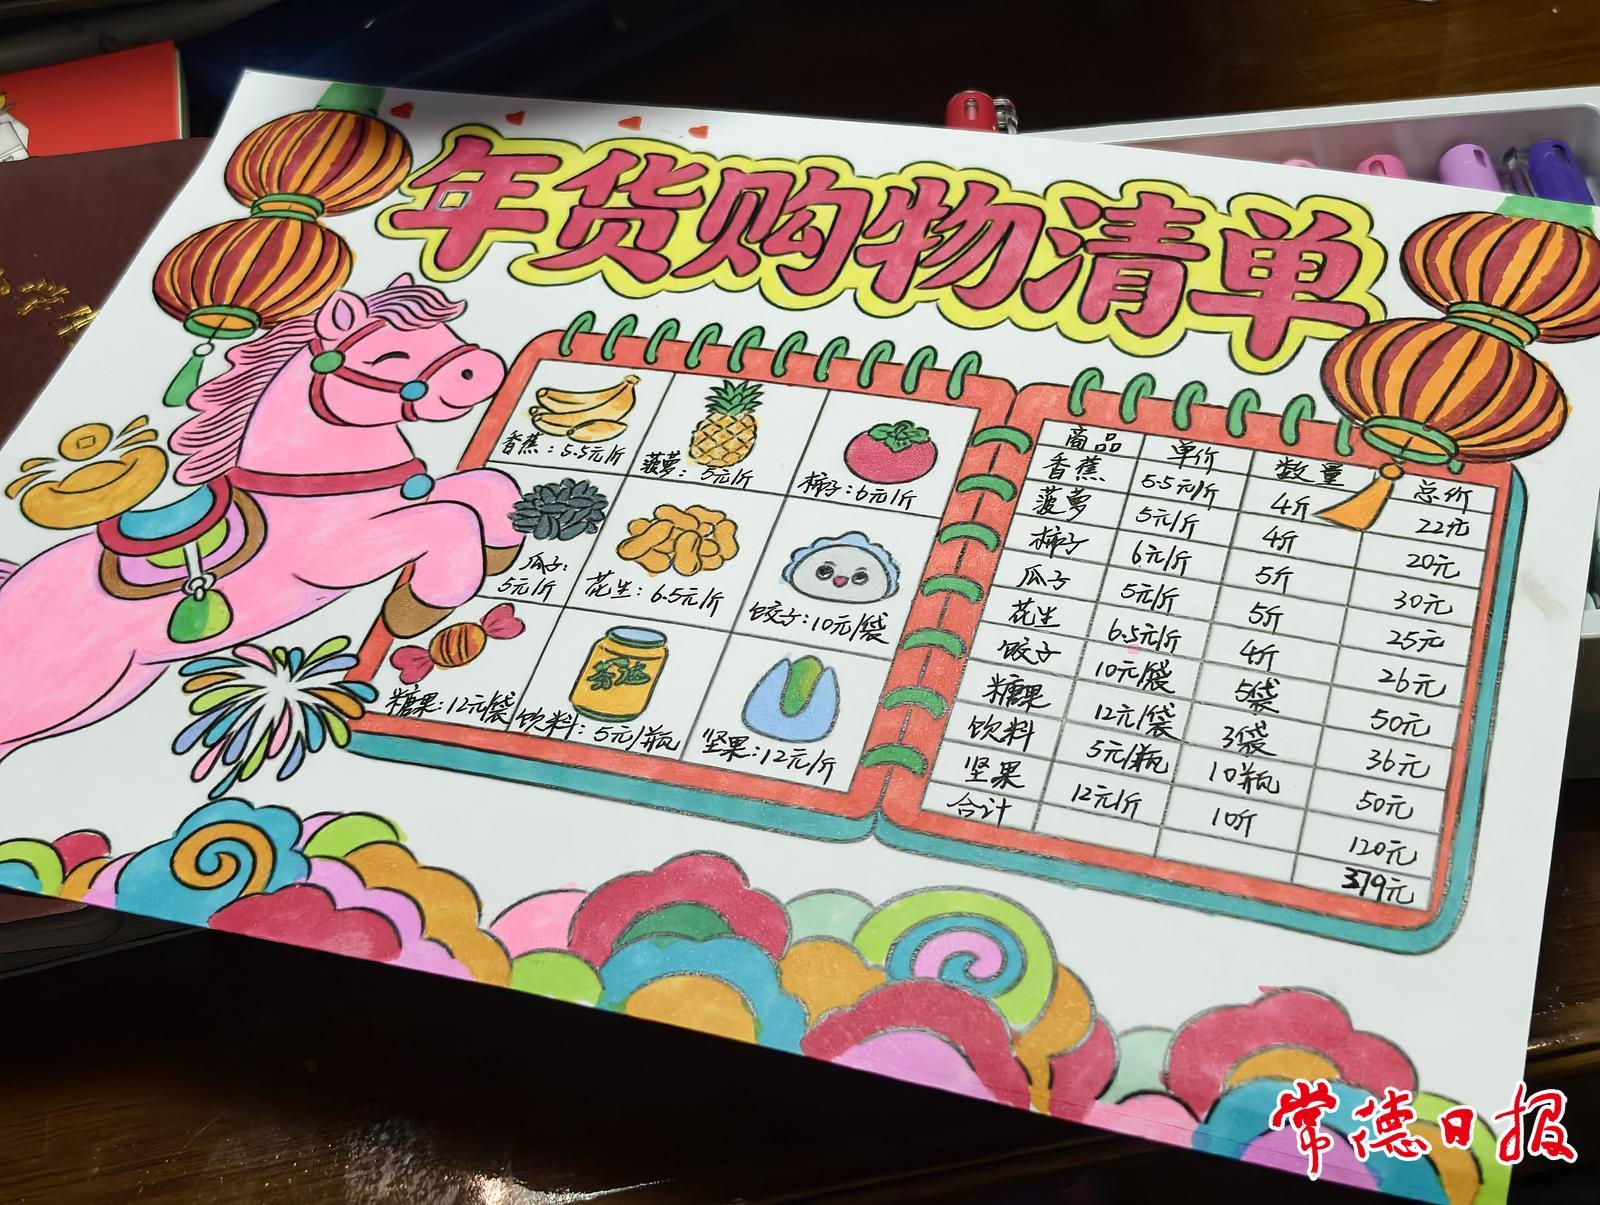 年货购物清单
香蕉：5.5元/斤
菠萝：5元/斤
柿子：6元/斤
瓜子：
5元/斤
花生：6.5元/斤
饺子：10元/袋
糖果：12元/袋
饮料：5元/瓶
坚果：12元/斤
商品 单价 数量 总价
香蕉 5.5元/斤 4斤 22元
菠萝 5元/斤 4斤 20元
柿子 6元/斤 5斤 30元
瓜子 5元/斤 5斤 25元
花生 6.5元/斤 4斤 26元
饺子 10元/袋 5袋 50元
糖果 12元/袋 3袋 36元
饮料 5元/瓶 10瓶 50元
坚果 12元/斤 10斤 120元
合计 379元
常德日报